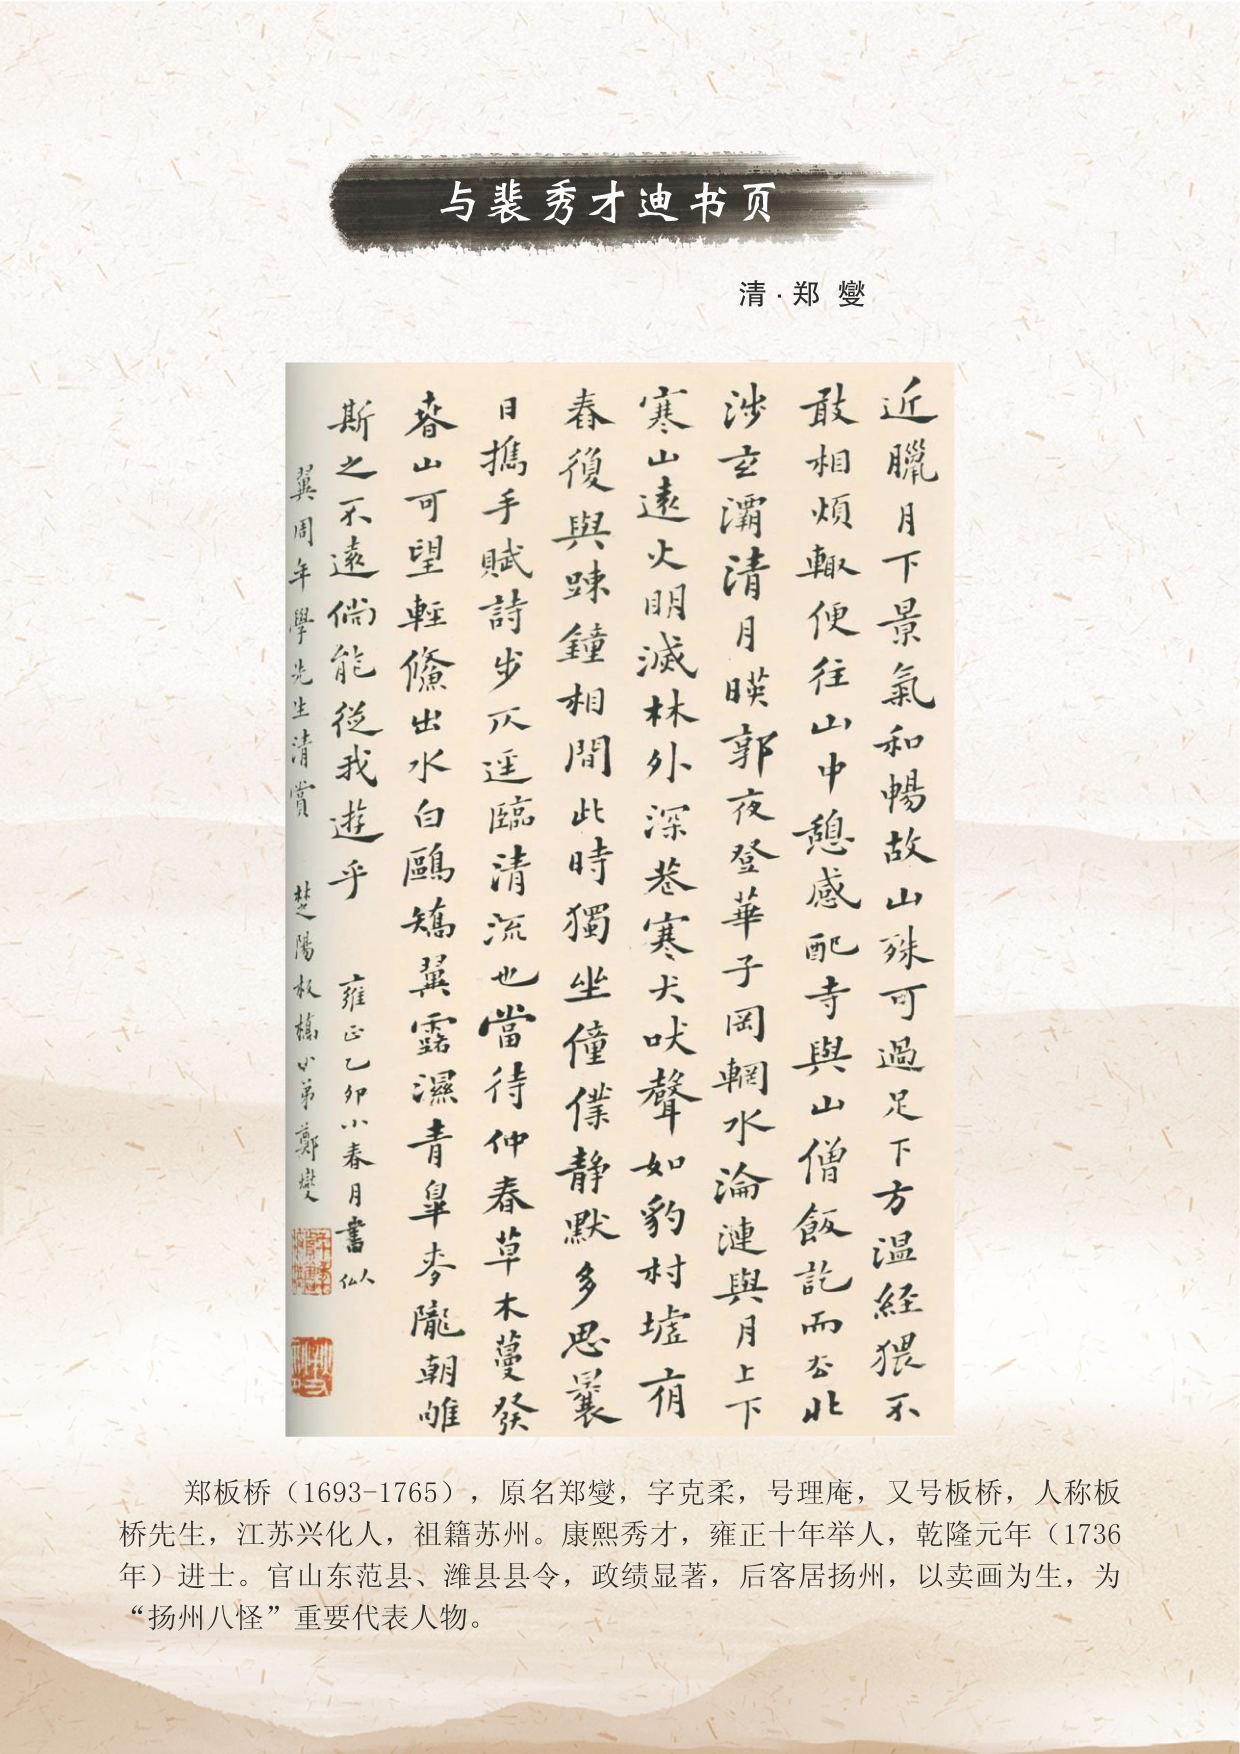 与裴秀才迪书页
清·郑燮
近臘月下景氣和暢故山殊可過足下方温経猥不
敢相煩輙便往山中憩感配寺與山僧飯訖而去北
涉玄灞清月暎郭夜登華子岡輞水淪漣與月上下
寒山遠火明滅林外深巷寒犬吠聲如豹村墟夜
舂復與踈鐘相間此時獨坐僮僕静默多思曩
日携手賦詩步仄逕臨清流也當待仲春草木蔓發
春山可望輕鯈出水白鷗矯翼露濕青皐麥隴朝雊
斯之不遠倘能從我遊乎 雍正乙卯小春月書
翼周年學先生清賞 楚陽板橋小弟鄭燮
郑板桥（1693-1765），原名郑燮，字克柔，号理庵，又号板桥，人称板
桥先生，江苏兴化人，祖籍苏州。康熙秀才，雍正十年举人，乾隆元年（1736
年）进士。官山东范县、潍县县令，政绩显著，后客居扬州，以卖画为生，为
“扬州八怪”重要代表人物。